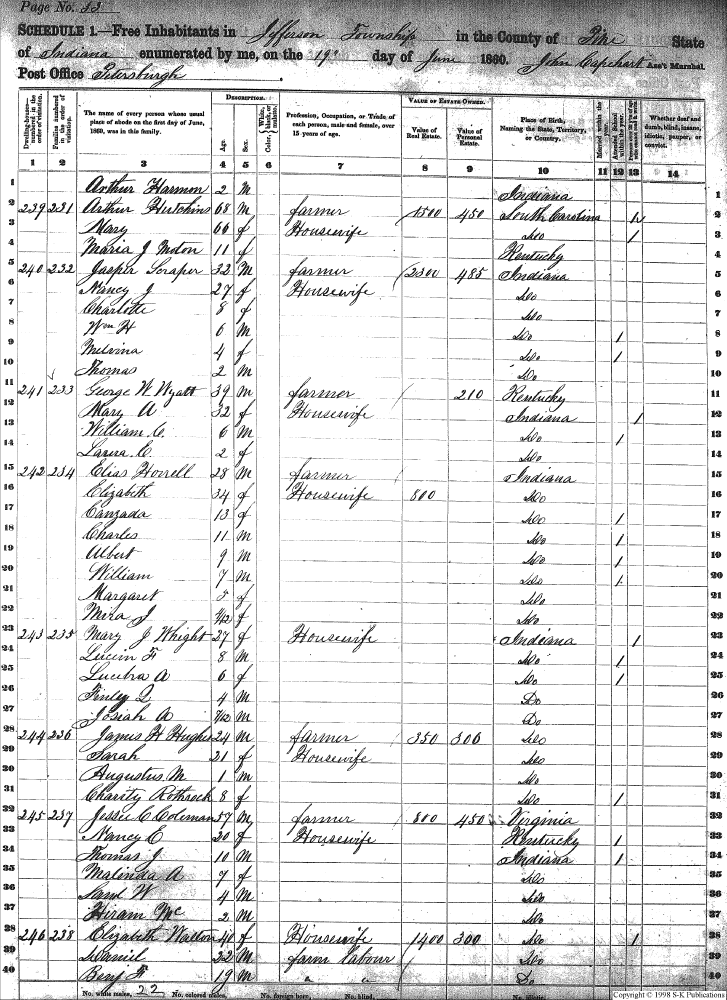 Page No. 33
SCHEDULE 1.—Free Inhabitants in Jefferson Township in the County of Pike State
of Indiana enumerated by me, on the 19th day of June 1860. John Capehart Ass't Marshal.
Post Office Petersburgh.
Dwelling-houses—numbered in the order of visitation.
Families numbered in the order of visitation.
The name of every person whose usual place of abode on the first day of June, 1860, was in this family.
DESCRIPTION.
Age.
Sex.
Color, White, black, or mulatto.
Profession, Occupation, or Trade of each person, male and female, over 15 years of age.
VALUE OF ESTATE OWNED.
Value of Real Estate.
Value of Personal Estate.
Place of Birth, Naming the State, Territory, or Country.
Married within the year.
Attended School within the year.
Whether deaf and dumb, blind, insane, idiotic, pauper, or convict.
1 2 3 4 5 6 7 8 9 10 11 12 13 14
1 Arthur Harmon 2 M Indiana 1
2 239 231 Arthur Hutchins 68 M farmer 1500 450 South Carolina 2
3 Mary 66 f Housewife Do / 3
4 Maria J 11 f Kentucky 4
5 240 232 Jasper Scraper 32 M farmer 2300 485 Indiana 5
6 Nancy J 27 f Housewife Do 6
7 Charlotte 8 f Do 7
8 Wm H 6 M Do / 8
9 Melvina 4 f Do / 9
10 Thomas 2 M Do 10
11 241 233 George W Wyatt 39 M farmer 210 Kentucky 11
12 Mary A 32 f Housewife Indiana / 12
13 William C. 6 M Do / 13
14 Laura C. 2 f Do 14
15 242 234 Elias Horrell 28 M farmer Indiana 15
16 Elizabeth 34 f Housewife 800 Do 16
17 Canzada 13 f Do / 17
18 Charles 11 M Do / 18
19 Albert 9 M Do / 19
20 William 7 M Do / 20
21 Margaret f Do 21
22 Mira J f Do 22
23 243 235 Mary J Whight 27 f Housewife Indiana / 23
24 F 8 M Do / 24
25 A 6 f Do / 25
26 Finley Q 4 M Do 26
27 Josiah A M Do 27
28 244 236 James H Hughes 24 M farmer 350 300 Do 28
29 Sarah 21 f Housewife Do 29
30 Augustus M 1 M Do 30
31 Charity Rothrock 8 f Do / 31
32 245 237 Jessie C Coleman 57 M farmer 800 450 Virginia 32
33 Nancy E 30 f Housewife Kentucky / 33
34 Thomas J 10 M Indiana / 34
35 Malinda A 7 f Do 35
36 Saml W 4 M Do 36
37 Hiram Mc 2 M Do 37
38 246 238 Elizabeth Walton 40 f Housewife 1400 300 Do / 38
39 Daniel 22 M farm labour Do 39
40 Benj F 19 M " " Do 40
No. white males, 22 No. colored males, No. foreign born, No. blind,
Copyright © 1998 S-K Publications